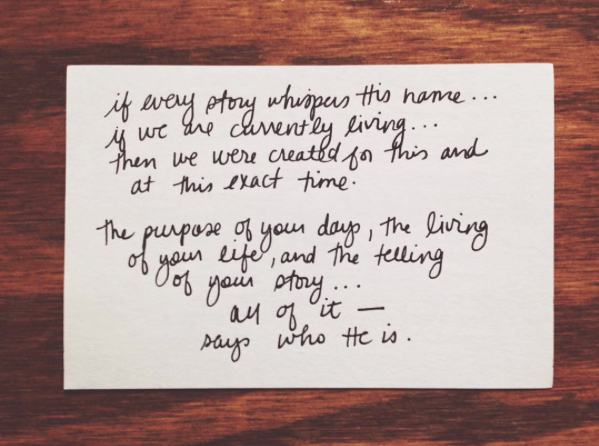 if every story whispers His name...
if we are currently living...
then we were created for this and
at this exact time.
the purpose of your days, the living
of your life, and the telling
of your story...
all of it —
says who He is.